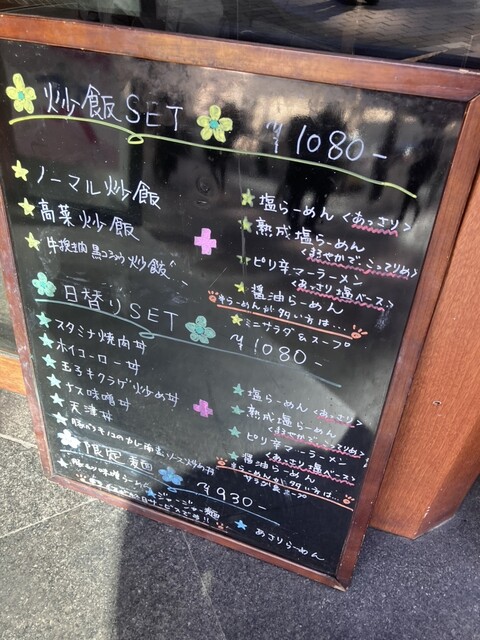 炒飯SET ¥1080-
ノーマル炒飯
高菜炒飯
牛挽肉黒コショウ炒飯
塩らーめん〈あっさり〉
熟成塩らーめん
〈まろやかで、こってりめ〉
ピリ辛マーラーメン
〈あっさり塩ベース〉
醤油らーめん
らーめんが多い方は…
ミニサラダ&スープ
日替りSET ¥1080-
スタミナ焼肉丼
ホイコーロー丼
玉子キクラゲ炒め丼
ナス味噌丼
天津丼
塩らーめん〈あっさり〉
熟成塩らーめん
〈まろやかで、こってりめ〉
ピリ辛マーラーメン
〈あっさり塩ベース〉
醤油らーめん
らーめんが多い方は…
サラダ&スープ
限定麺 ¥930-
味噌らーめん
ジャージャー麺
あさりらーめん
サービスです!!